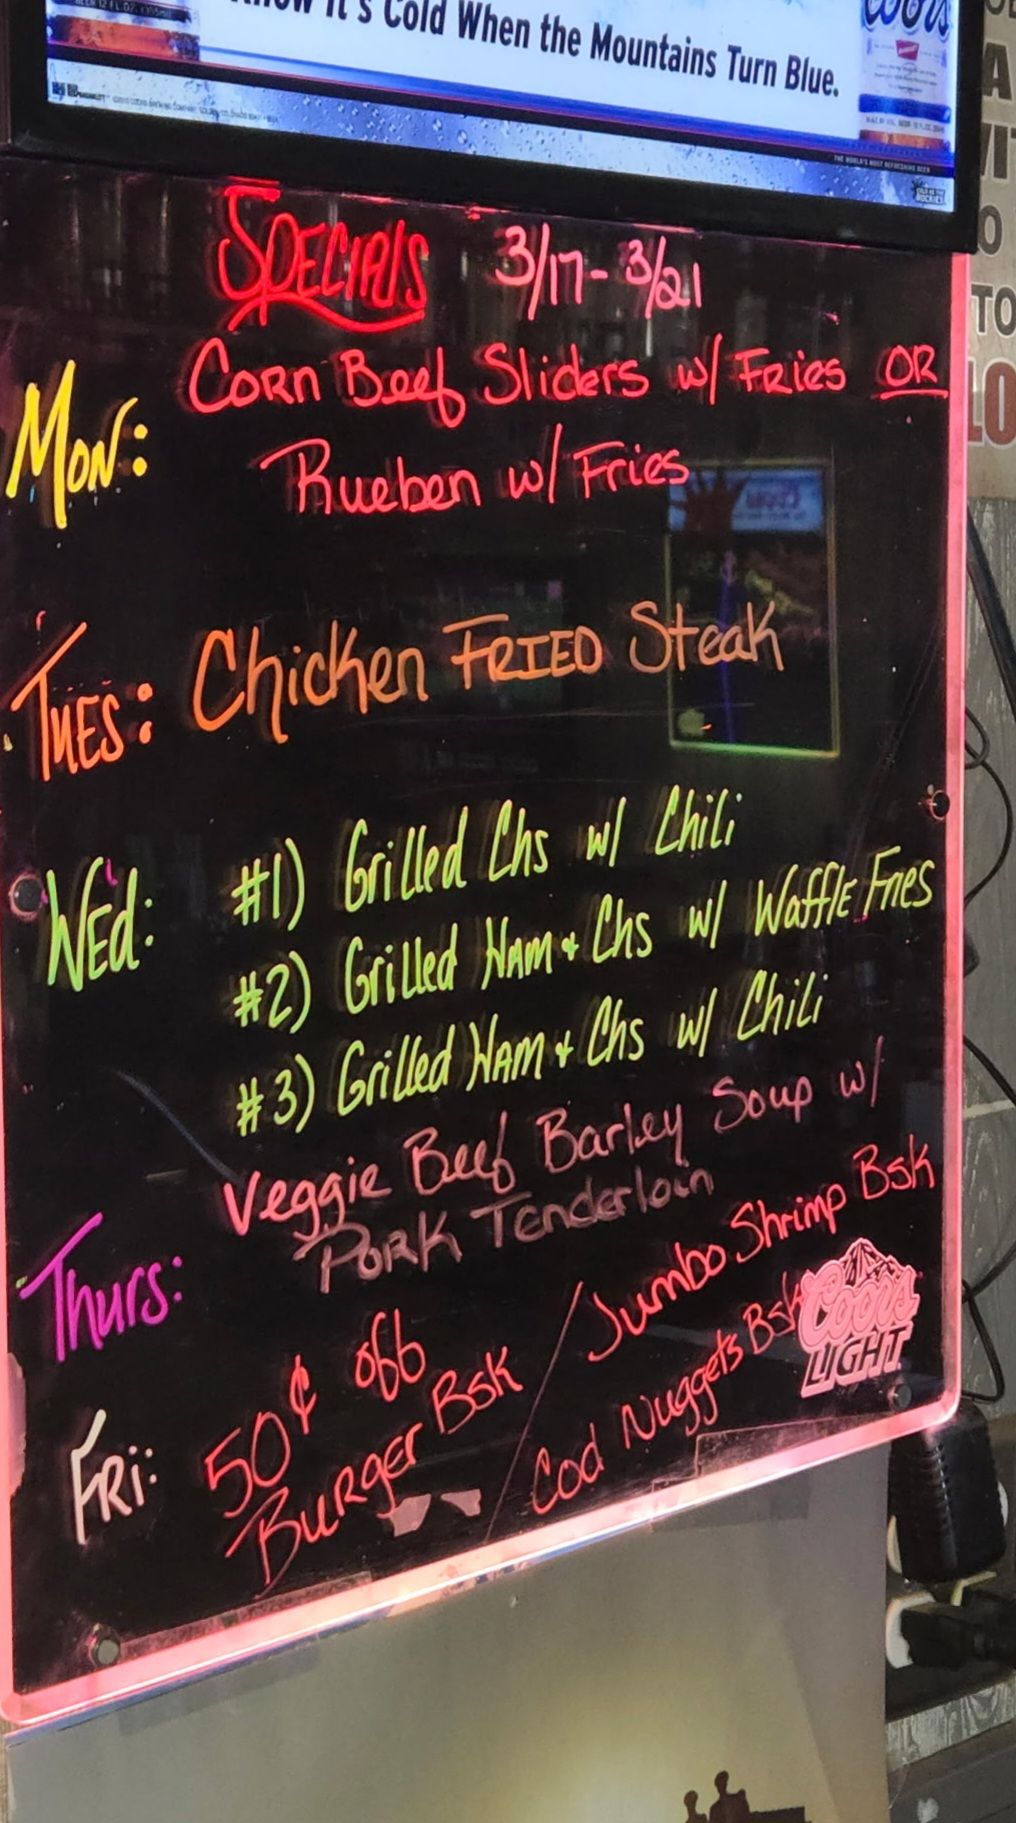 It's Cold When the Mountains Turn Blue.
Coors
THE WORLD'S MOST REFRESHING BEER
SPECIALS 3/17-3/21
MON: CORN Beef Sliders w/ FRies OR
Rueben w/ Fries
TUES: Chicken FRIED Steak
WEd: #1) Grilled Chs w/ Chili
#2) Grilled HAM + Chs w/ WaffLE Fries
#3) Grilled HAM + Chs w/ Chili
Thurs: Veggie Beef Barley Soup w/
PORK Tenderloin
FRi: 50¢ off
BURger Bsk
/ Jumbo Shrimp Bsk
Cod Nuggets Bsk
Coors
LIGHT
A
O
TO
LO